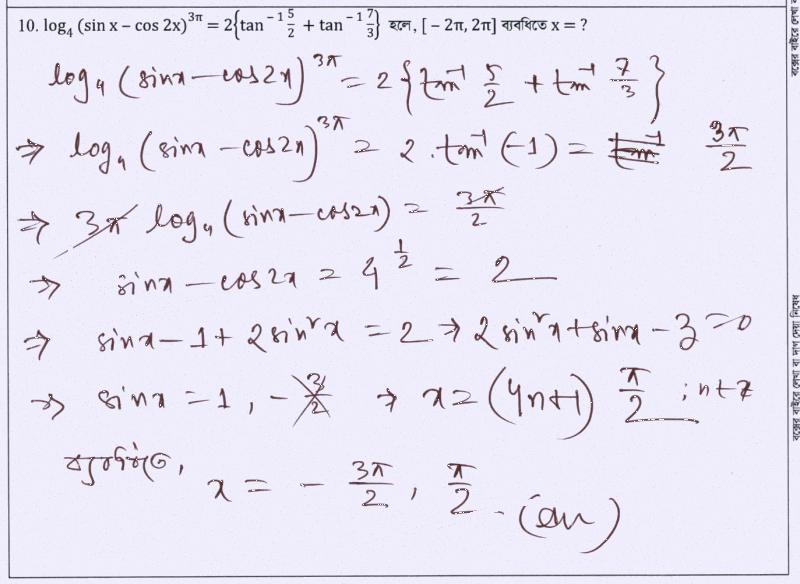 10. log₄ (sin x − cos 2x)^{3π} = 2{tan⁻¹ 5/2 + tan⁻¹ 7/3} হলে, [ − 2π, 2π] ব্যবধিতে x = ?
log₄ (sinx − cos2x)^{3π} = 2 {tan⁻¹ 5/2 + tan⁻¹ 7/3}
⇒ log₄ (sinx − cos2x)^{3π} = 2 . tan⁻¹ (−1) = 3π/2
⇒ 3π log₄ (sinx − cos2x) = 3π/2
⇒ sinx − cos2x = 4^{1/2} = 2
⇒ sinx − 1 + 2 sin²x = 2 → 2 sin²x + sinx − 3 = 0
⇒ sinx = 1, − 3/2 → x = (4n+1) π/2 ; n ∈ Z
ব্যবধিতে, x = − 3π/2, π/2 . (Ans)
বক্সের বাইরে লেখা বা দাগ দেয়া নিষেধ